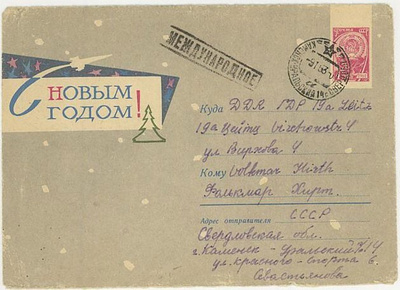 МЕЖДУНАРОДНОЕ
С НОВЫМ
ГОДОМ!
Куда DDR ГДР 19a Zeitz
19а Цейтц Virchowstr 4
ул. Вирхова 4
Кому Volkmar Hirth
Фолькмар Хирт.
Адрес отправителя СССР
Свердловская обл.
г. Каменск-Уральский №14
ул. Красного-Спорта 6
Севастьянова